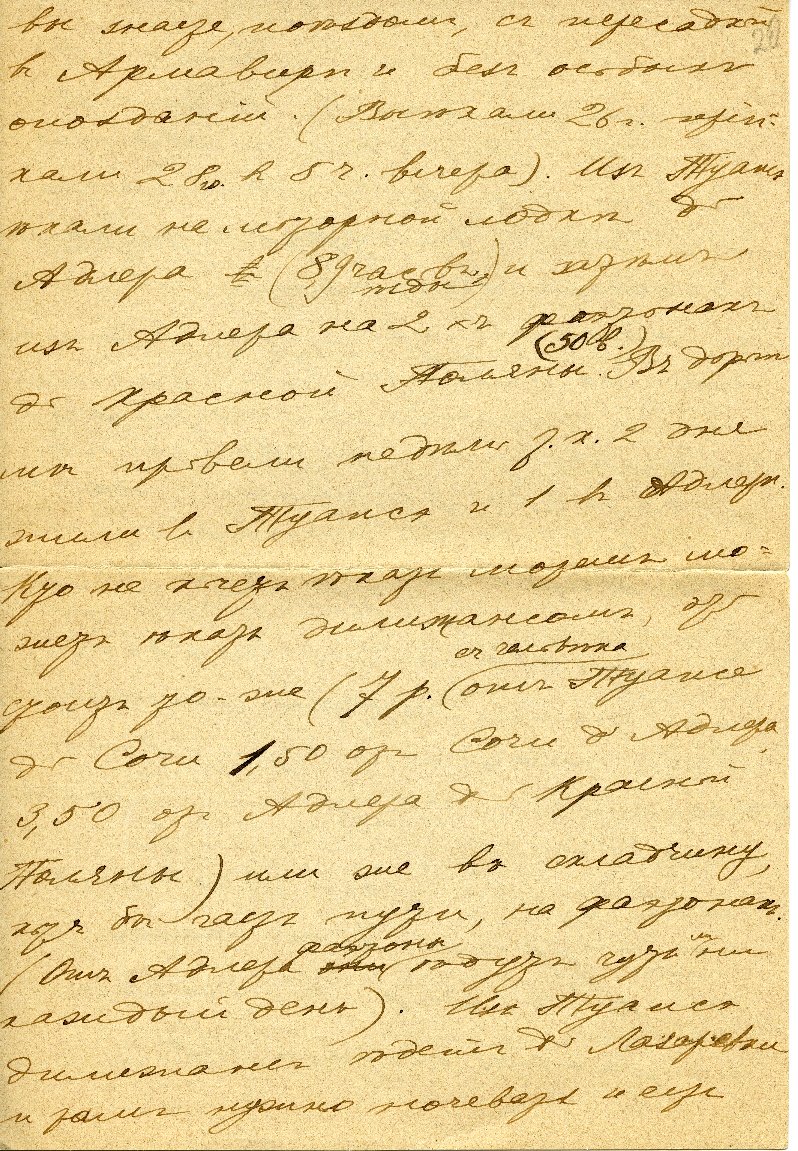 вы знаете, поѣздомъ, съ пересадкой
20
в Армавирѣ и безъ особыхъ
опозданій. (Выѣхали 26 г. пріѣ-
хали 28го. в 5 ч. вечера). Изъ Туапсе
ѣхали на моторной лодкѣ до
Адлера (8 часовъ ѣзды) и затѣмъ
изъ Адлера на 2хъ фаэтонахъ
до Красной Поляны (50 в.). Въ дорогѣ
мы провели недѣлю т. к. 2 дня
жили в Туапсе и 1 в Адлерѣ.
Кто не хочетъ ѣхать моремъ мо-
жетъ ѣхать дилижансомъ, это
стоитъ то-же (7 р. съ человѣка (отъ Туапсе
до Сочи 1,50 отъ Сочи до Адлера,
3,50 отъ Адлера до Красной
Поляны) или же въ складчину,
хотя бы часть пути, на фаэтонахъ.
(Отъ Адлера фаэтоны ѣдутъ чуть ли не
каждый день). Изъ Туапсе
дилижансъ ѣдетъ до Лазаревки
и тамъ нужно ночевать и еще